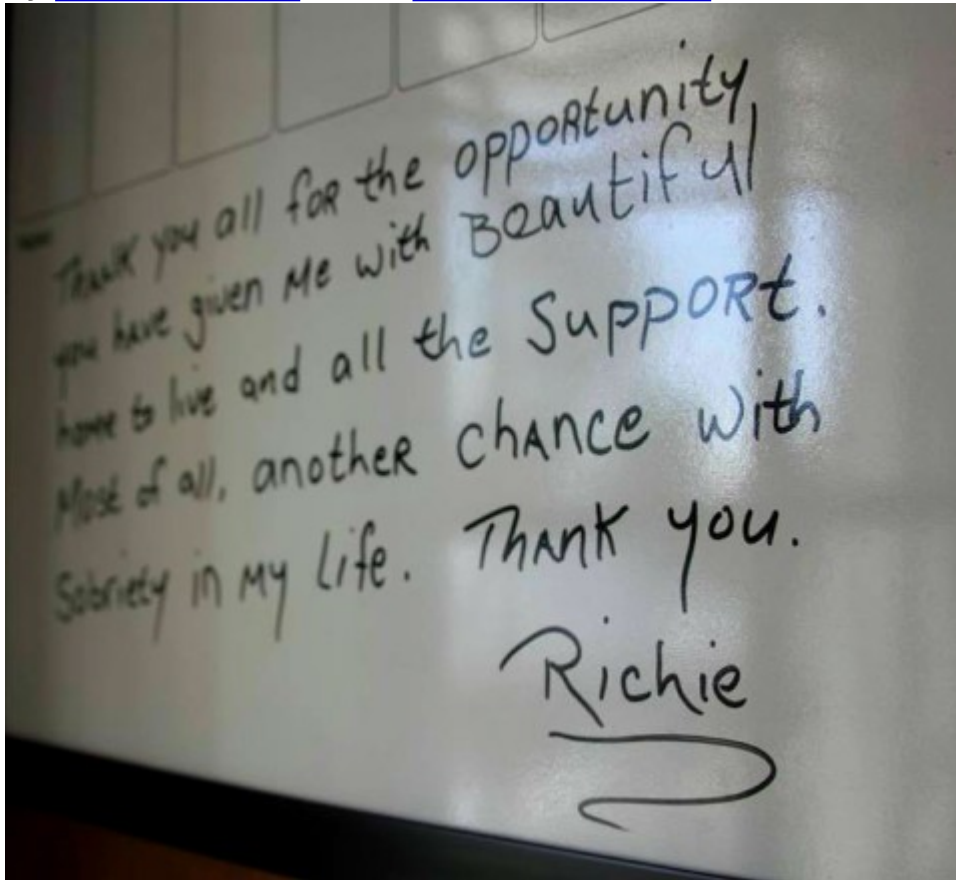 Thank you all for the opportunity
you have given Me with Beautiful
home to live and all the Support.
Most of all, another chance with
Sobriety in My Life. Thank you.
Richie